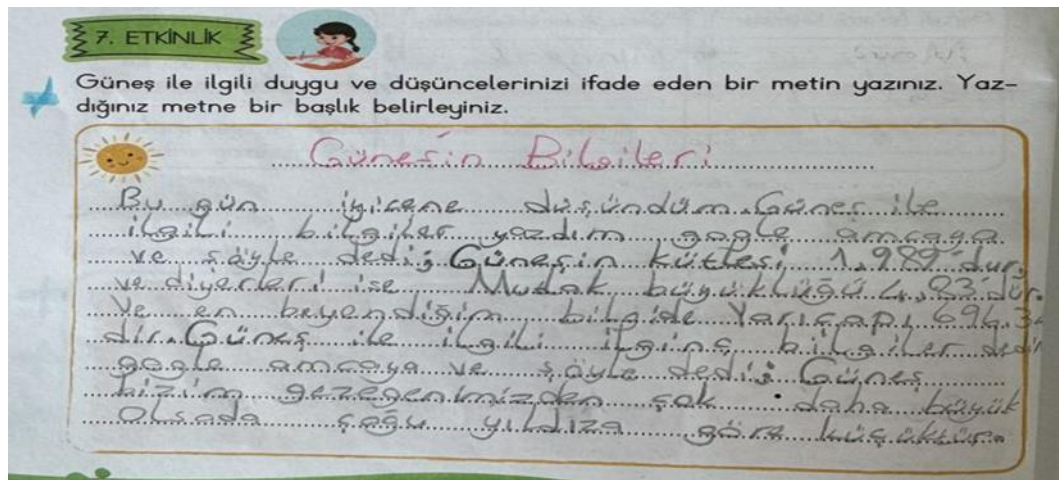 7. ETKİNLİK
Güneş ile ilgili duygu ve düşüncelerinizi ifade eden bir metin yazınız. Yaz-
dığınız metne bir başlık belirleyiniz.
Güneş'in Bilgileri
Bu gün iyicene düşündüm. Güneş ile
ilgili bilgiler yazdım google amcaya
ve şöyle dedi; Güneşin kütlesi 1,989'dur,
ve diyerleri ise Mutlak büyüklüğü 4,83'dür.
Ve en beyendiğim bilgide Yarıçapı 694.34
dir. Güneş ile ilgili ilginç bilgiler dedim
google amcaya ve şöyle dedi; Güneş
bizim gezegenimizden çok daha büyük
olsada çoğu yıldıza göre küçüktür.